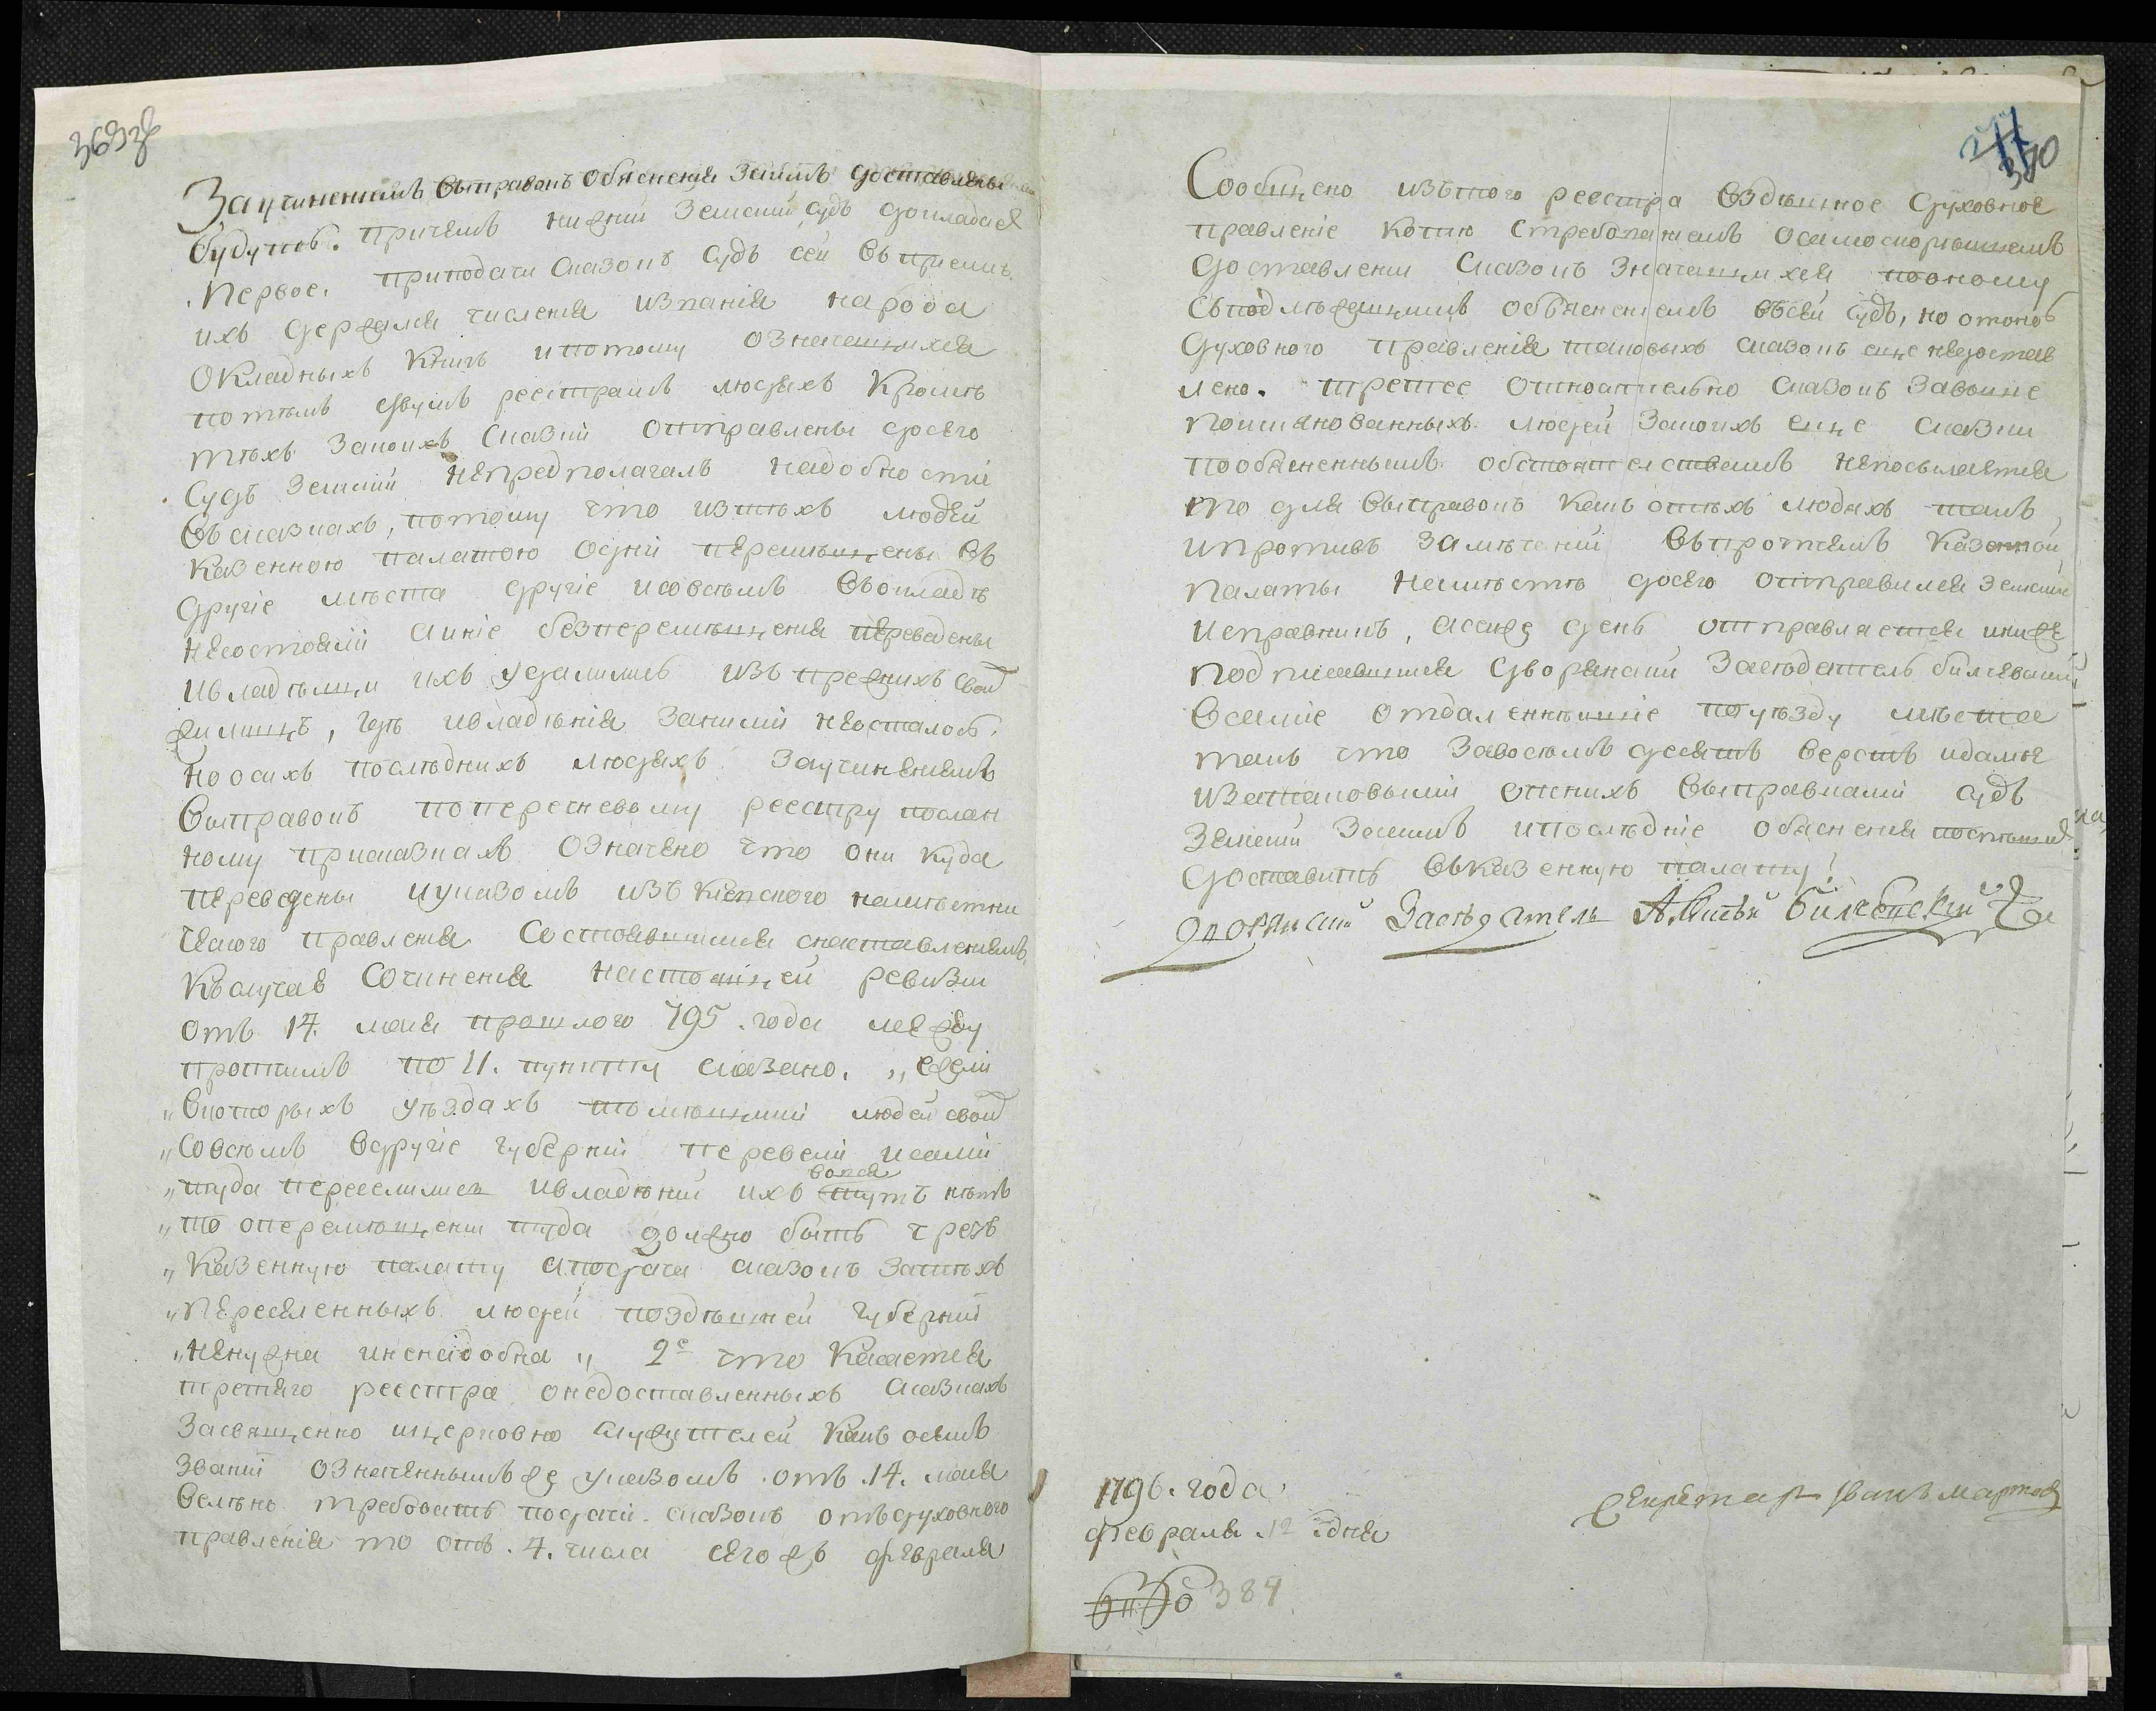 369зв
Заучиненіемъ выправокъ объясненія Земъмъ доставлены
будутъ. причемъ нижній Земскій судъ докладаетъ
Первое. приподачи сказокъ судъ сей въ приемѣ
ихъ держался численія изданія народа
окладныхъ книгъ ипотому означающихся
потѣмъ двумъ реестрамъ людяхъ кромѣ
тѣхъ закоихъ сказки отправлены досего
Судъ Земскій непредполагалъ надобности
въ сказкахъ, потому что изтѣхъ людей
казенною палатою одни перемѣщены въ
другіе мѣста другіе исовсѣмъ вокладѣ
несостояли аиніе безперемѣщенія переведены
ивладѣльцы ихъ удалились изъ прежнихъ своих
жилищъ, гдѣ ивладѣнія заними неосталось,
но осихъ послѣднихъ людяхъ заучиненіемъ
выправокъ поперечневому реестру послан
ному присказкахъ означено что они куда
переведены иуказомъ изъ Кіевского намѣстни
ческого правленія Состоявшимся снаставленіемъ
Кьслучаѣ Сочиненія настоящей ревизіи
отъ 14. маія прошлого 795. года между
протчимъ по 11. пункту сказано. „ ежели
„ вкоторыхъ уѣздахъ помѣщики людей своих
„ Совсѣмъ вдругіе губерніи перевели исами
„ туда переселились ивладѣній ихъ тутъ нѣтъ
вовся
„ то операмѣщеніи туда должно быть чрезъ
„ Казенную палату аподачи сказокъ затѣхъ
„ Переселенныхъ людей поздѣшней губерніи
„ ненужна иненадобна „ 2е что касается
третяго реестра онедоставленныхъ сказкахъ
Засвященно ицерковно служителей какъ осемъ
званіи означеннымъ же указомъ отъ 14. маія
велѣно требовать подачи сказокъ отъ духовного
правленія то отъ 4. числа сегожъ февраля
370
Сообщено изътого реестра вздѣшное духовное
правленіе копію стребованіемъ осамоскорѣйшемъ
доставленіи сказокъ значащихся пооному
съподлѣжащимъ объясненіемъ въсей судъ, но отонъ
духовного правленія таковыхъ сказокъ еще недостав
лено. третее относительно сказокъ Завоине
поимянованныхъ людей Закоихъ еще сказки
пообъясненнымъ обстоятелствамъ непосылается
то для выправокъ какъ отѣхъ людяхъ такъ
ипротивъ замѣчаній въпротчемъ казенной
палаты намѣсто досего отправился Земскій
исправникъ, асадъ день отправляется иниже
подписавшійся дворянскій Заседатель билевский
Всаміе отдаленнѣйшіе поуѣзду мѣста
такъ что завосемь десятъ верстъ идалѣе
изатаковыми отънихъ выправками судъ
Земскій Земимъ ипослѣдніе объясненія поспѣшитъ
доставить въказенную палату!
дворянский Засѣдатель Алексѣй Билевский
1796. года.
февраля 12 дня
Секретарь Иванъ мартов
№ 384